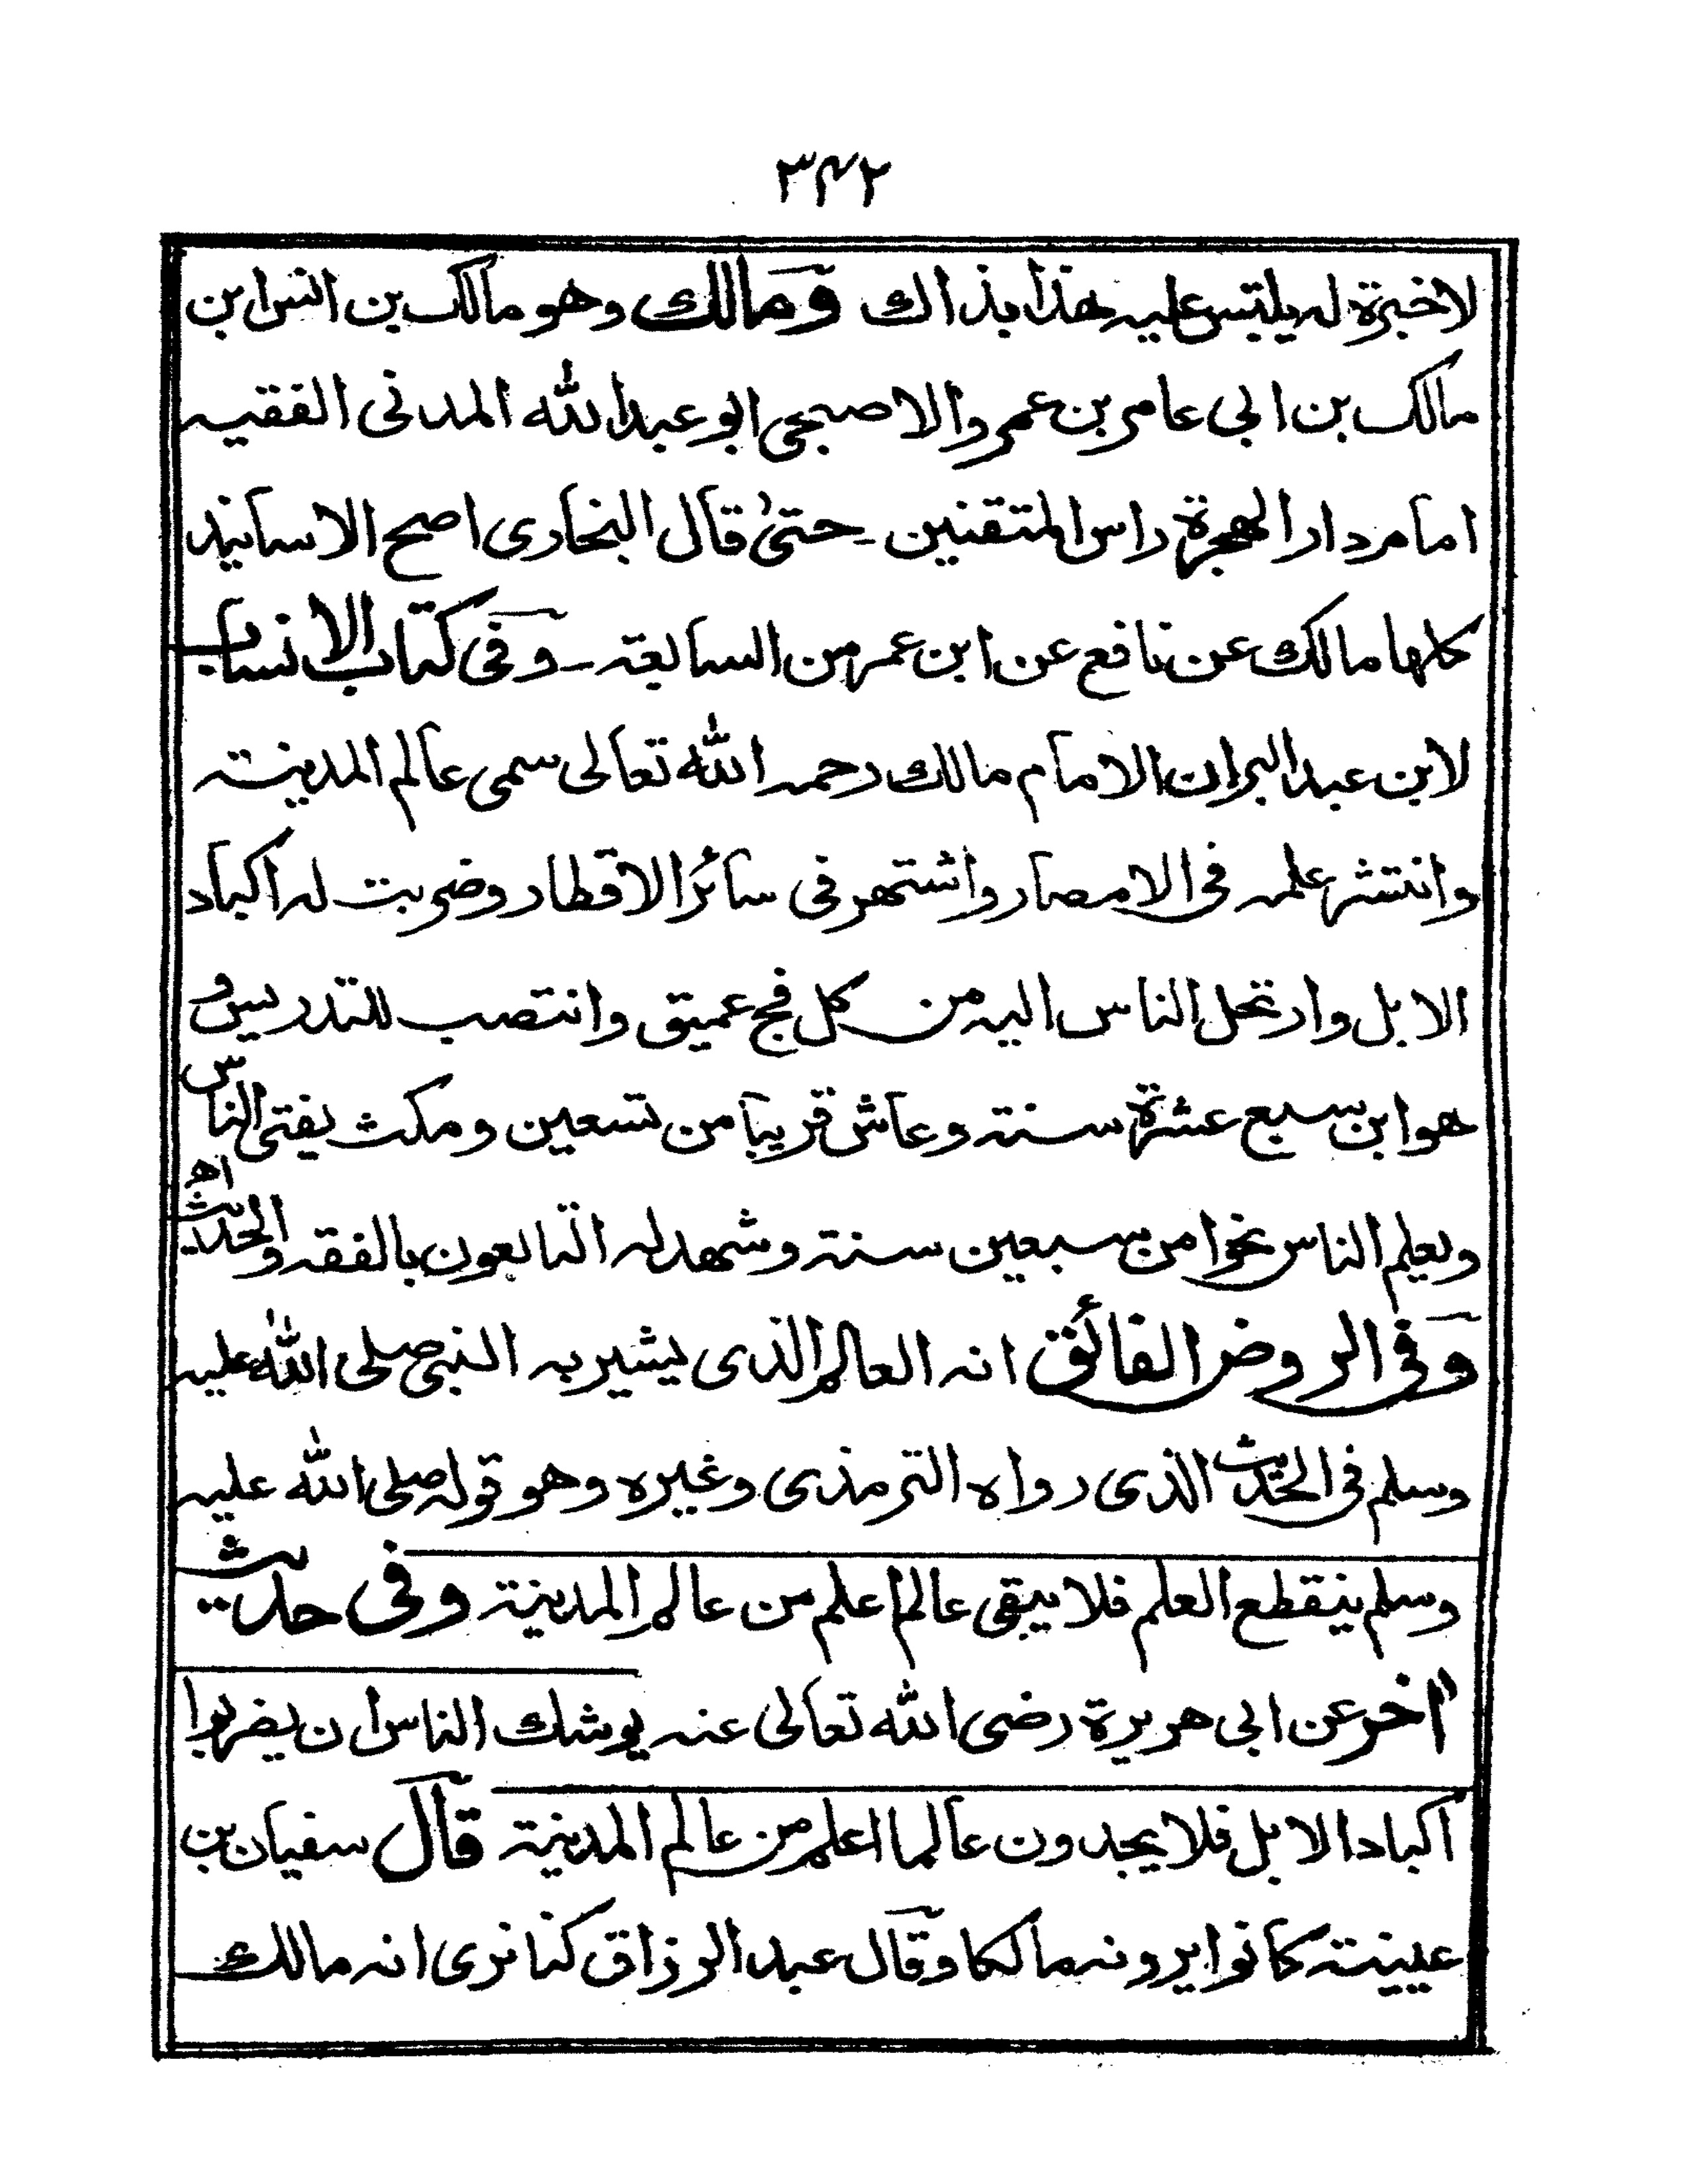 ۳۴۲
لا خبرة له يلتبس عليه هذا بذاك ومالك وهو مالك بن انس ابن
مالك بن ابي عامر بن عمرو الاصبحي ابو عبد الله المدنى الفقيه
امام دار الهجرة راس المتقنين ـ حتىٰ قال البخارى اصح الاسانيد
كلها مالك عن نافع عن ابن عمر من السابعة ـ وفى كتاب الانساب
لابن عبد البر ان الامام مالك رحمه الله تعالى سمى عالم المدينة
وانتشر علمه فى الامصار واشتهر فى سائر الاقطار وضربت له اكباد
الابل وارتحل الناس اليه من كل فج عميق وانتصب للتدريس و
هو ابن سبع عشرة سنة وعاش قريبا من تسعين ومكث يفتى الناس
ويعلم الناس نحوا من سبعين سنة وشهد له التابعون بالفقه والحديث اھ
وفى الروض الفائق انه العالم الذى يشير به النبى صلى الله عليه
وسلم فى الحديث الذى رواه الترمذى وغيره وهو قوله صلى الله عليه
وسلم ينقطع العلم فلا يبقى عالم اعلم من عالم المدينة وفى حديث
اٰخر عن ابى هريرة رضى الله تعالى عنه يوشك الناس ان يضربوا
اكباد الابل فلا يجدون عالما اعلم من عالم المدينة قال سفيان بن
عيينة كانوا يرونه مالكا وقال عبد الرزاق كنا نرى انه مالك